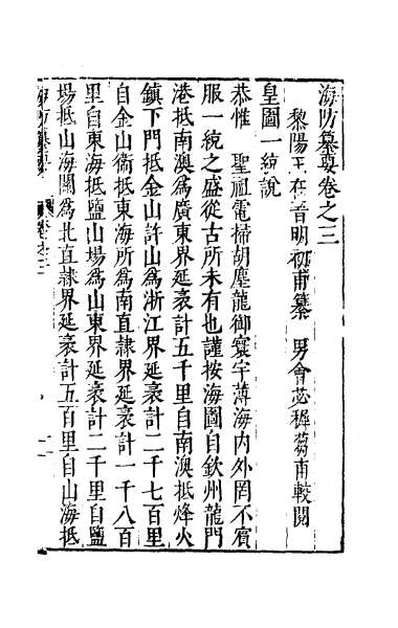 海防纂要卷之三
黎陽王在晉明初甫纂 男會苾穉芻甫較閱
皇圖一統說
恭惟 聖祖電掃胡塵龍御寰宇薄海內外罔不賓
服一統之盛從古所未有也謹按海圖自欽州龍門
港抵南澳為廣東界延袤計五千里自南澳抵烽火
鎮下門抵金山許山為浙江界延袤計二千七百里
自金山衞抵東海所為南直隸界延袤計一千八百
里自東海抵鹽山場為山東界延袤計二千里自鹽
場抵山海關為北直隸界延袤計五百里自山海抵
海防纂要 卷之三